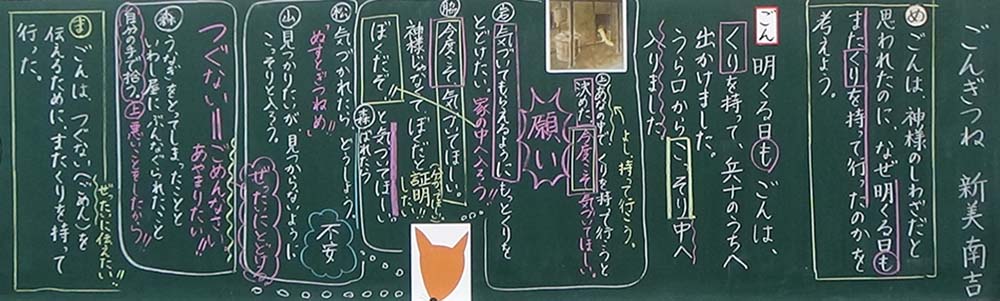 ごんぎつね　新美南吉
め
ごんは、神様のしわざだと
思われたのに、なぜ明くる日も
またくりを持って行ったのかを
考えよう。
ごん
明くる日も、ごんは、
くりを持って、兵十のうちへ
出かけました。
うら口から、こっそり中へ
入りました。
よし、持って行こう。
くりを持って行こうと
決めた。今度こそ気づいてほしい。
願い
岩
気づいてもらえるように、もっとくりを
とどけたい。家の中へ入ろう。
脇
今度こそ気づいてほしい。
神様じゃなくて、ぼくだと証明
したい!!
ぼくだぞ!!と気づいてほしい
森
松
気づかれたらどうしよう。
「ぬすっとぎつねめ」
山
見つかりたいが、見つからないように
こっそりと入ろう。
不安
ぜったいにとどける
つぐない＝ごめんなさい。
あやまりたい!!
森
うなぎをとってしまったことと
いわし屋に、ぶんなぐられたこと
自分の手で拾う。上悪いことをしたから
ま
ごんは、つぐない(ごめん)を
ぜったいに伝えたい!!
伝えるために、またくりを持って
行った。